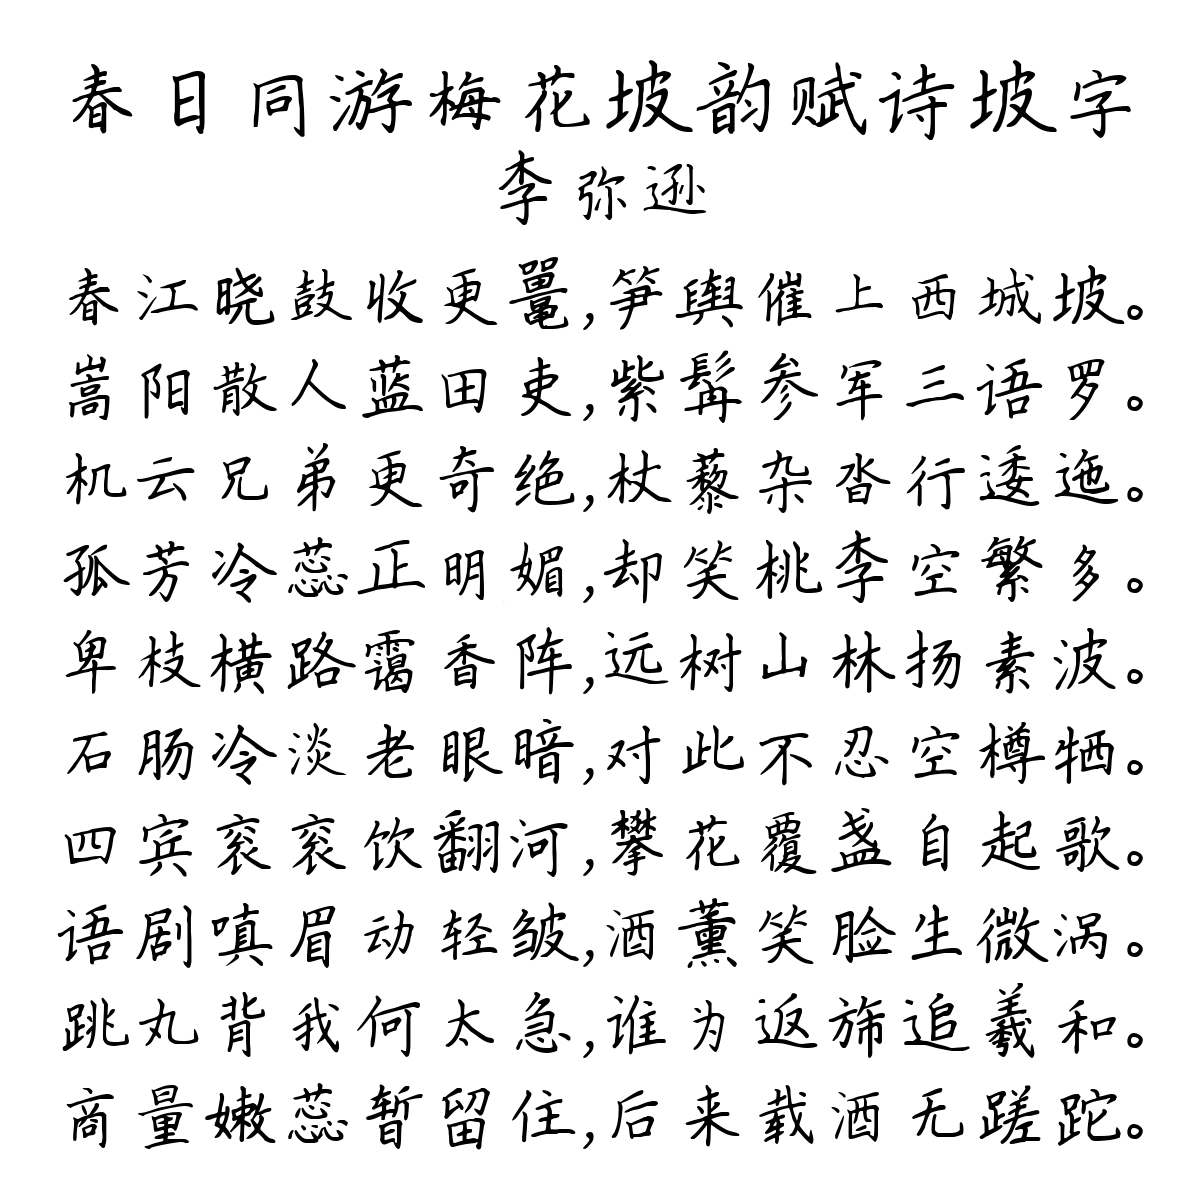 春日同游梅花坡韵赋诗坡字
李弥逊
春江晓鼓收更鼍,笋舆催上西城坡。
嵩阳散人蓝田吏,紫髯参军三语罗。
机云兄弟更奇绝,杖藜杂沓行逶迤。
孤芳冷蕊正明媚,却笑桃李空繁多。
卑枝横路霭香阵,远树山林扬素波。
石肠冷淡老眼暗,对此不忍空樽牺。
四宾衮衮饮翻河,攀花覆盏自起歌。
语剧嗔眉动轻皱,酒薰笑脸生微涡。
跳丸背我何太急,谁为返旆追羲和。
商量嫩蕊暂留住,后来载酒无蹉跎。